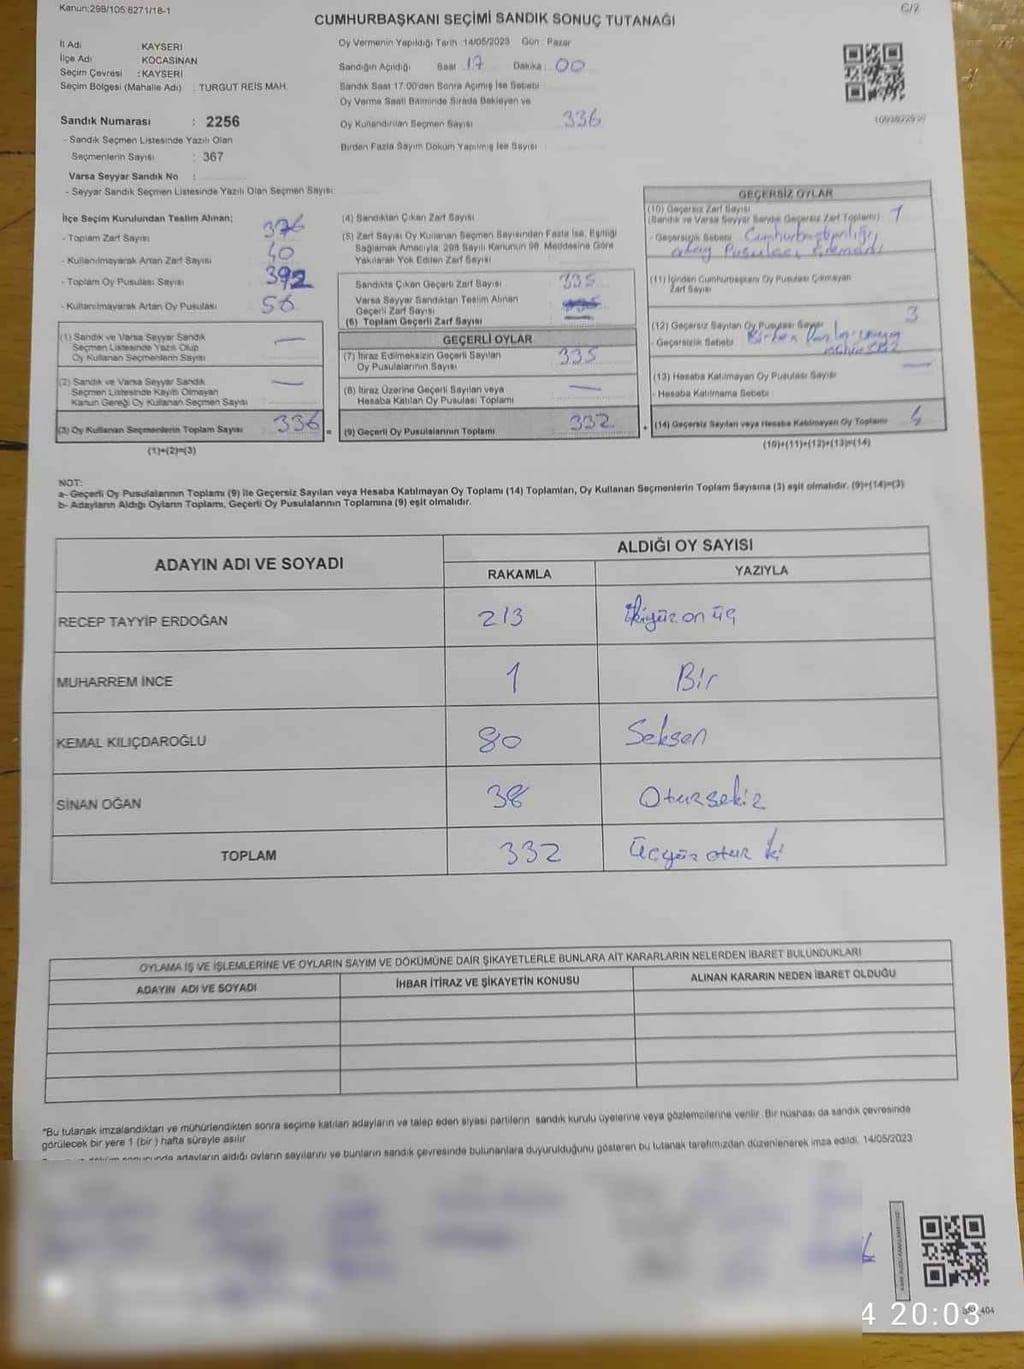 Kanun:298/105:6271/18-1
C/2
CUMHURBAŞKANI SEÇİMİ SANDIK SONUÇ TUTANAĞI
İl Adı KAYSERİ
İlçe Adı KOCASİNAN
Seçim Çevresi : KAYSERİ
Seçim Bölgesi (Mahalle Adı) : TURGUT REİS MAH.
Sandık Numarası : 2256
- Sandık Seçmen Listesinde Yazılı Olan
Seçmenlerin Sayısı : 367
Varsa Seyyar Sandık No :
- Seyyar Sandık Seçmen Listesinde Yazılı Olan Seçmen Sayısı:
Oy Vermenin Yapıldığı Tarih :14/05/2023 Gün : Pazar
Sandığın Açıldığı Saat : 17 Dakika : 00
Sandık Saat 17:00'den Sonra Açılmış İse Sebebi
Oy Verme Saati Bitiminde Sırada Bekleyen ve
Oy Kullandırılan Seçmen Sayısı 336
Birden Fazla Sayım Döküm Yapılmış İse Sayısı :
İlçe Seçim Kurulundan Teslim Alınan;
- Toplam Zarf Sayısı 376
- Kullanılmayarak Artan Zarf Sayısı 40
- Toplam Oy Pusulası Sayısı 392
- Kullanılmayarak Artan Oy Pusulası 56
(1) Sandık ve Varsa Seyyar Sandık
Seçmen Listesinde Yazılı Olup
Oy Kullanan Seçmenlerin Sayısı —
(2) Sandık ve Varsa Seyyar Sandık
Seçmen Listesinde Kayıtlı Olmayan
Kanun Gereği Oy Kullanan Seçmen Sayısı —
(3) Oy Kullanan Seçmenlerin Toplam Sayısı 336 =
(1)+(2)=(3)
(4) Sandıktan Çıkan Zarf Sayısı
(5) Zarf Sayısı Oy Kullanan Seçmen Sayısından Fazla İse, Eşitliği
Sağlamak Amacıyla, 298 Sayılı Kanunun 98. Maddesine Göre
Yakılarak Yok Edilen Zarf Sayısı
Sandıkta Çıkan Geçerli Zarf Sayısı 335
Varsa Seyyar Sandıktan Teslim Alınan
Geçerli Zarf Sayısı
(6) Toplam Geçerli Zarf Sayısı
GEÇERLİ OYLAR
(7) İtiraz Edilmeksizin Geçerli Sayılan
Oy Pusulalarının Sayısı 335
(8) İtiraz Üzerine Geçerli Sayılan veya
Hesaba Katılan Oy Pusulası Toplamı —
(9) Geçerli Oy Pusulalarının Toplamı 332 +
GEÇERSİZ OYLAR
(10) Geçersiz Zarf Sayısı
(Sandık ve Varsa Seyyar Sandık Geçersiz Zarf Toplamı) 1
- Geçersizlik Sebebi Cumhurbaşkanlığı
Pusulası
(11) İçinden Cumhurbaşkanı Oy Pusulası Çıkmayan
Zarf Sayısı
(12) Geçersiz Sayılan Oy Pusulası Sayısı 3
- Geçersizlik Sebebi Birden
(13) Hesaba Katılmayan Oy Pusulası Sayısı —
- Hesaba Katılmama Sebebi
(14) Geçersiz Sayılan veya Hesaba Katılmayan Oy Toplamı 4
(10)+(11)+(12)+(13)=(14)
NOT:
a- Geçerli Oy Pusulalarının Toplamı (9) ile Geçersiz Sayılan veya Hesaba Katılmayan Oy Toplamı (14) Toplamları, Oy Kullanan Seçmenlerin Toplam Sayısına (3) eşit olmalıdır. (9)+(14)=(3)
b- Adayların Aldığı Oyların Toplamı, Geçerli Oy Pusulalarının Toplamına (9) eşit olmalıdır.
ADAYIN ADI VE SOYADI
ALDIĞI OY SAYISI
RAKAMLA YAZIYLA
RECEP TAYYİP ERDOĞAN 213 İkiyüz on üç
MUHARREM İNCE 1 Bir
KEMAL KILIÇDAROĞLU 80 Seksen
SİNAN OĞAN 38 Otuzsekiz
TOPLAM 332 Üçyüz otuz iki
OYLAMA İŞ VE İŞLEMLERİNE VE OYLARIN SAYIM VE DÖKÜMÜNE DAİR ŞİKAYETLERLE BUNLARA AİT KARARLARIN NELERDEN İBARET BULUNDUKLARI
ADAYIN ADI VE SOYADI İHBAR İTİRAZ VE ŞİKAYETİN KONUSU ALINAN KARARIN NEDEN İBARET OLDUĞU
*Bu tutanak imzalandıktan ve mühürlendikten sonra seçime katılan adayların ve talep eden siyasi partilerin sandık kurulu üyelerine veya gözlemcilerine verilir. Bir nüshası da sandık çevresinde
görülecek bir yere 1 (bir ) hafta süreyle asılır
adayların aldığı oyların sayılarını ve bunların sandık çevresinde bulunanlara duyurulduğunu gösteren bu tutanak tarafımızdan düzenlenerek imza edildi. 14/05/2023
4 20:03